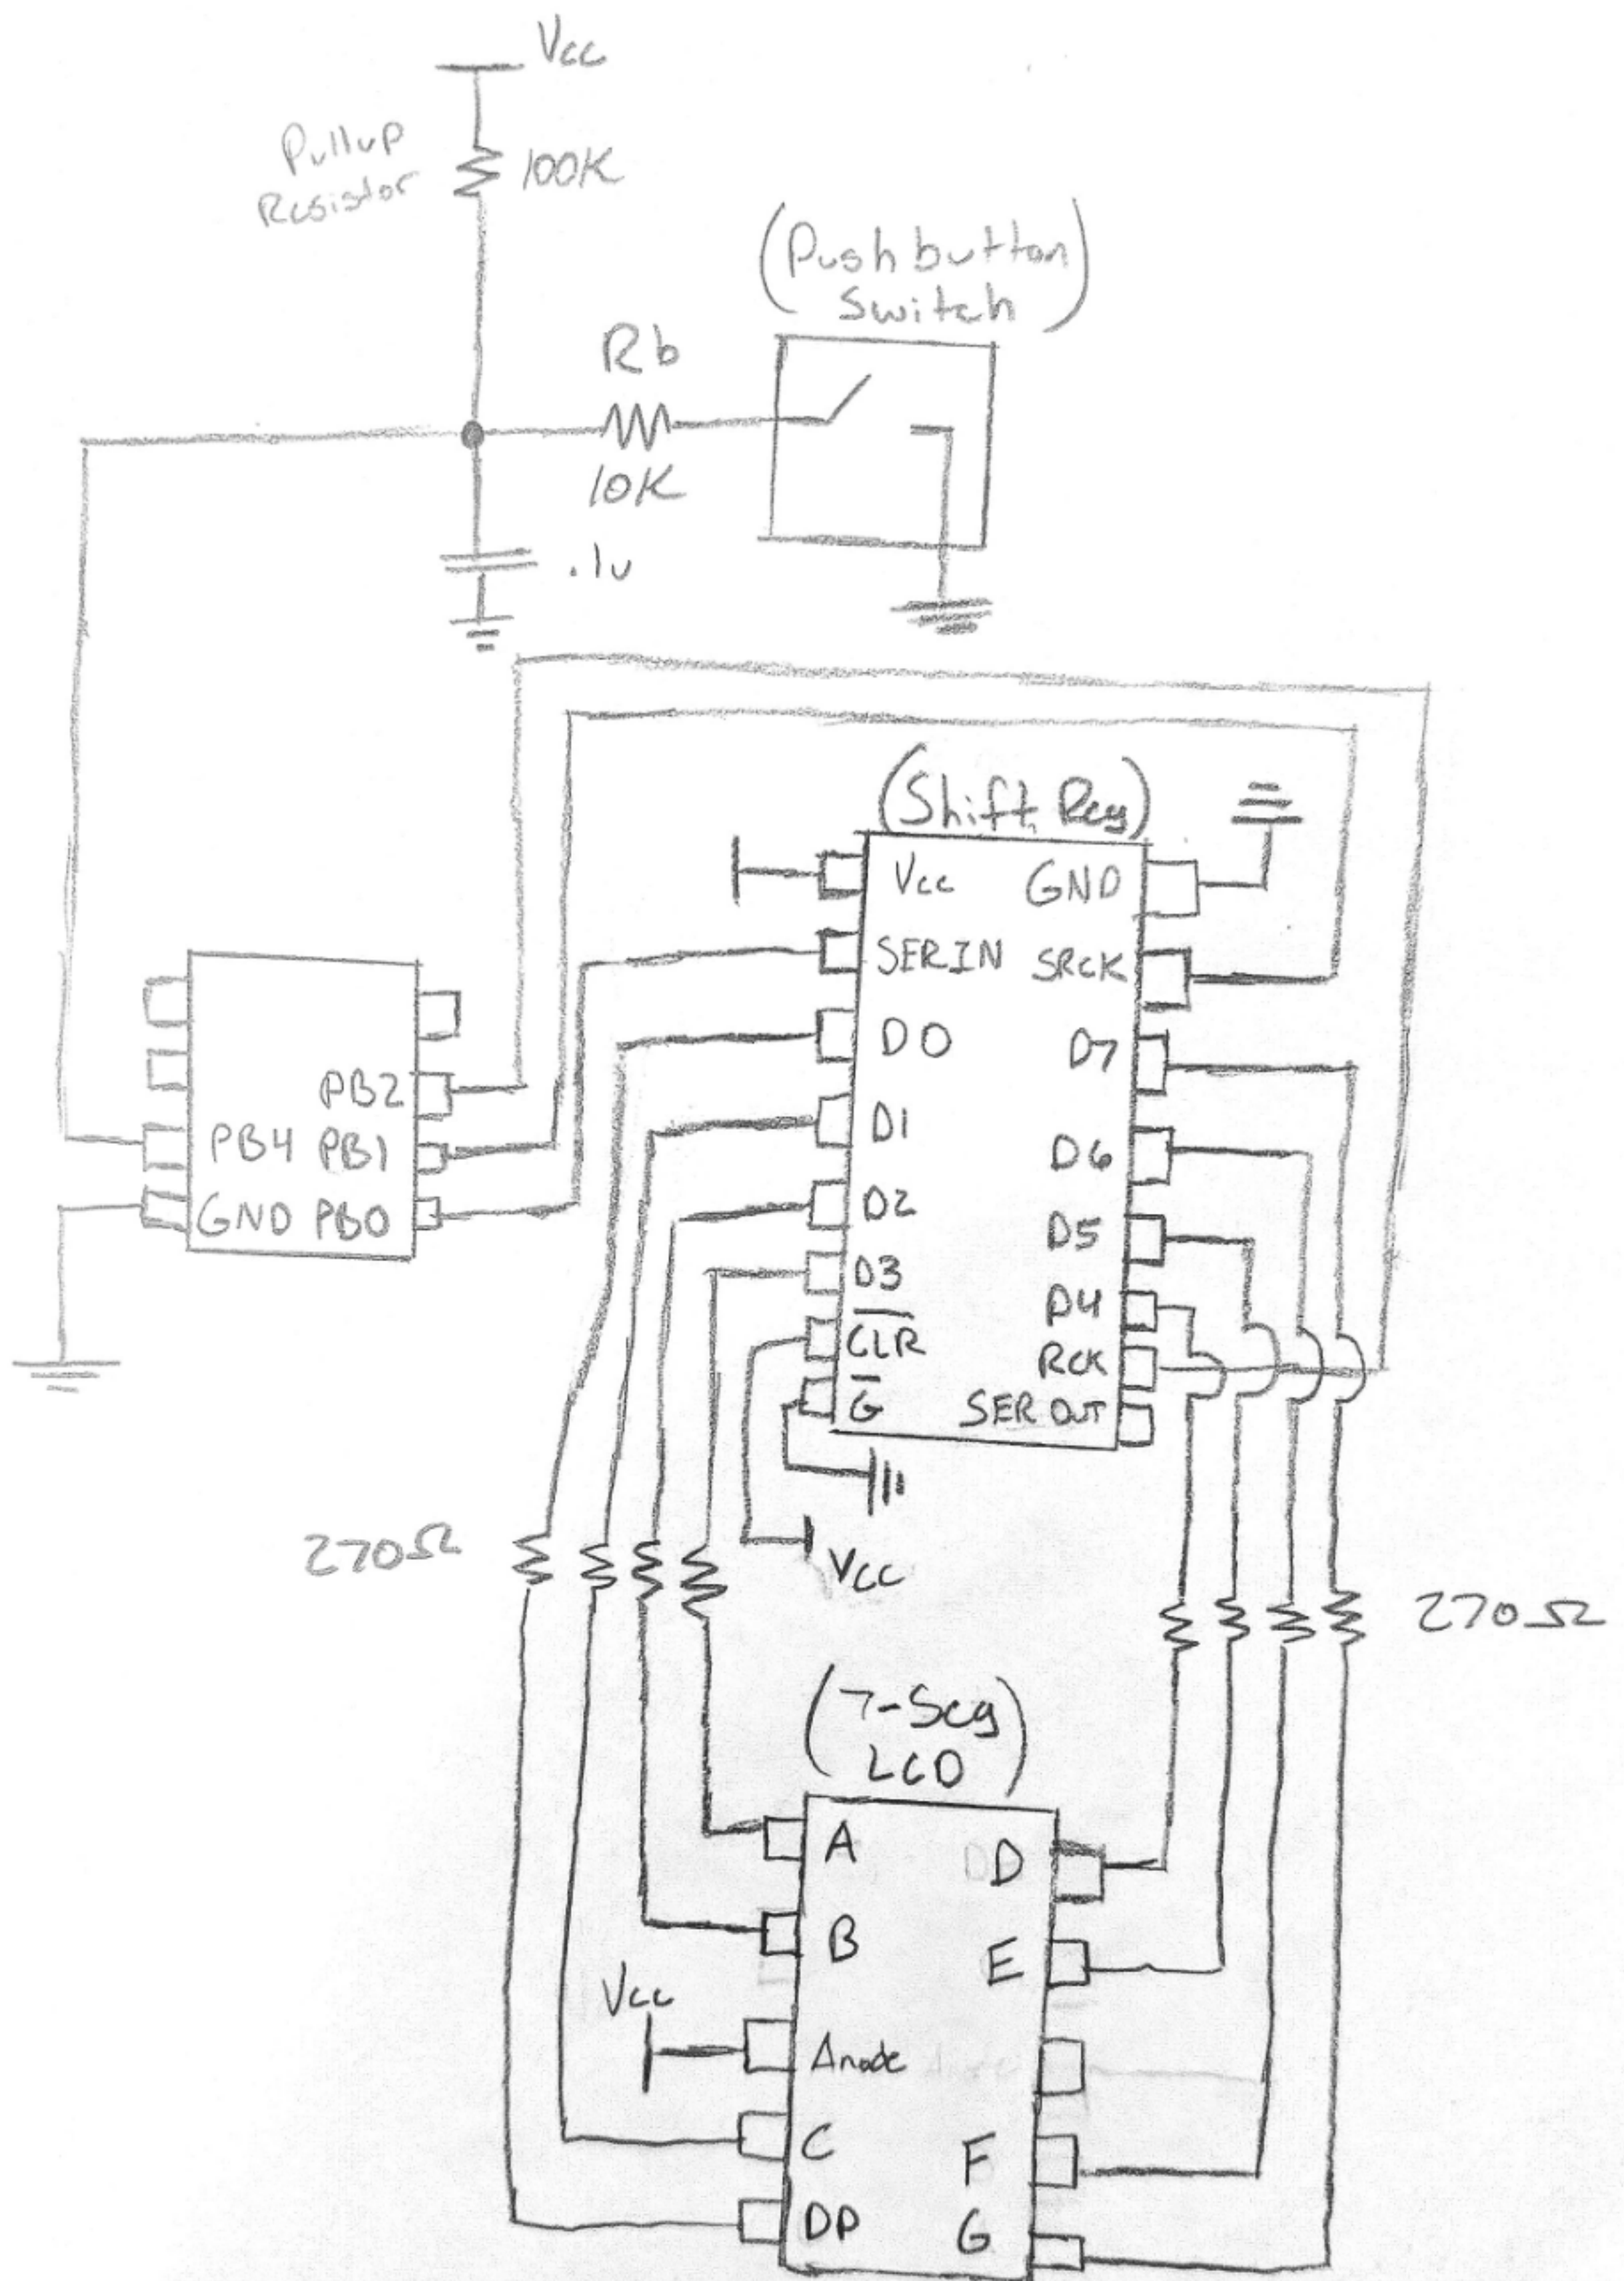 Vcc
Pullup
Resistor
100K
(Pushbutton
Switch)
Rb
10K
.1u
(Shift Reg)
Vcc
GND
SERIN
SRCK
D0
D7
D1
D6
D2
D5
D3
D4
CLR
RCK
G
SER OUT
PB2
PB4
PB1
GND
PB0
270Ω
Vcc
270Ω
(7-Seg
LCD)
A
D
B
E
Vcc
Anode
C
F
DP
G